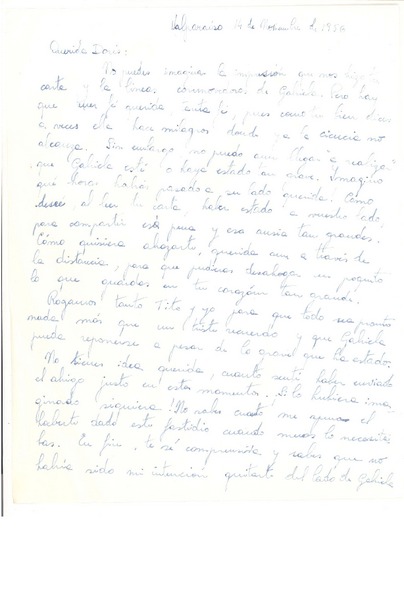 Valparaíso 14 de Noviembre de 1956
Querida Doris:
No puedes imaginar la impresión que nos dejó tu
carta y las líneas conmovedoras de Gabriela. Pero hay
que tener fé querida tanta fé, pues como tú bien dices
a veces ella hace milagros donde ya la ciencia no
alcanza. Sin embargo no puedo aún llegar a "realizar"
que Gabriela esté o haya estado tan grave. Imagino
qué horas habrás pasado a su lado querida. Cómo
deseé, al leer tu carta haber estado a vuestro lado,
para compartir esa pena y esa ansia tan grandes.
Cómo quisiera abrazarte, querida aún a través de
la distancia, para que pudieras desahogar un poquito
lo que guardas en tu corazón tan grande.
Rogamos tanto Tito y yo para que todo sea pronto
nada más que un triste recuerdo y que Gabriela
pueda reponerse a pesar de lo grave que ha estado.
No tienes idea querida, cuánto sentí haber enviado
el abrigo justo en estos momentos. Si lo hubiera ima
ginado siquiera! No sabes cuánto me apena el
haberte dado este fastidio cuando menos lo necesita
bas. En fin, te sé comprensiva y sabes que no
había sido mi intención quitarte del lado de Gabriela